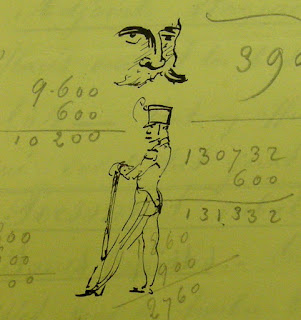 390
9.600
600
10 200
130732
600
131.332
60
900
2760